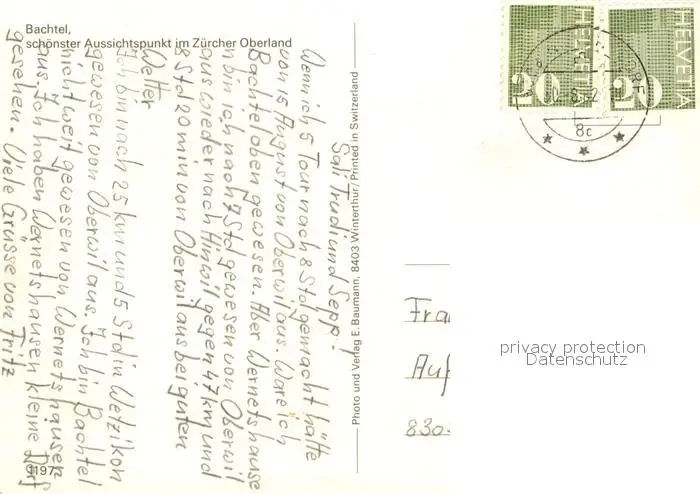 Bachtel,
schönster Aussichtspunkt im Zürcher Oberland
Sali Trudi und Sepp!
Wenn ich 5 Tour nach 8 Std gemacht hätte
von 15 August von Oberwil aus. Wäre ich
Bachtel oben gewesen. Aber Wernetshause
n bin ich nach 7 Std gewesen von Oberwil
aus wieder nach Hinwil gegen 47 km und
8 Std 20 min von Oberwil aus bei guten
Wetter
Ich bin nach 25 km und 5 Std in Wetzikon
gewesen von Oberwil aus. Ich bin Bachtel
nicht weit gewesen von Wernetshausen
aus. Ich haben Wernetshausen kleine Dorf
gesehen. Viele Grüsse von Fritz
1197
Photo und Verlag E. Baumann, 8403 Winterthur/Printed in Switzerland
HELVETIA
20
HELVETIA
20
8c
Fra
Auf
830
privacy protection
Datenschutz